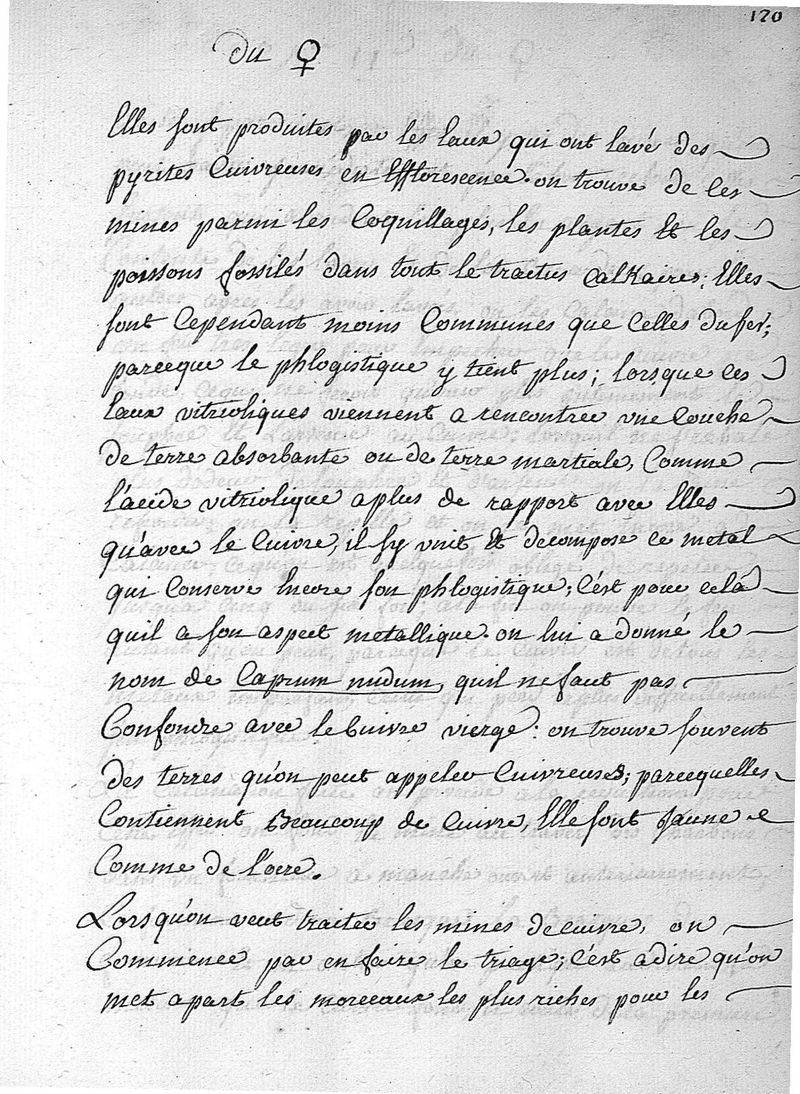 120
du ♀
Elles sont produites par les Eaux qui ont lavé des
pyrites Cuivreuses en Efflorescence. on trouve de ces
mines parmi les Coquillages, les plantes Et les
poissons fossilés dans tout le tractus calKaire; Elles
sont Cependant moins Communes que Celles du fer;
parceque le phlogistique y tient plus; lorsque ces
Eaux vitrioliques viennent a rencontrer vne Couche
de terre absorbante ou de terre martiale, Comme
l'acide vitriolique a plus de rapport avec Elles
qu'avec le Cuivre, il s'y vnit Et decompose ce metal
qui Conserve Encore son phlogistique; C'est pour cela
quil a son aspect metallique. on lui a donné le
nom de Caprum nudum, quil ne faut pas
Confondre avec le Cuivre vierge: on trouve souvent
des terres qu'on peut appeler Cuivreuses; parcequelles
Contiennent Beaucoup de Cuivre, Elle sont Jaune
Comme de l'ocre.
Lorsqu'on veut traiter les mines de cuivre, on
Commence par en faire le triage; C'est a dire qu'on
met apart les morceaux les plus riches pour les